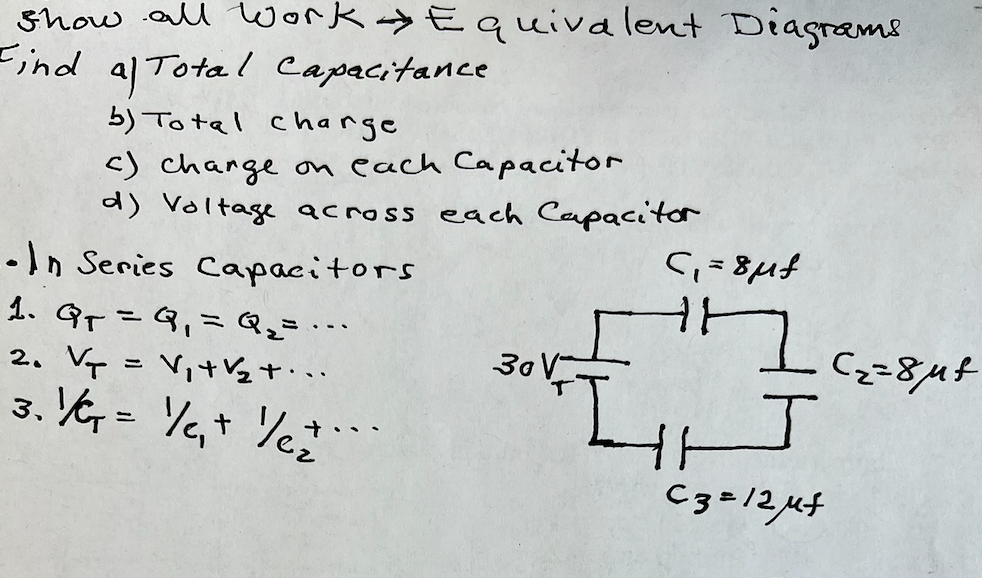 show all work → Equivalent Diagrams
Find a) Total Capacitance
b) Total charge
c) charge on each Capacitor
d) Voltage across each Capacitor
• In Series Capacitors
1. Q_T = Q₁ = Q₂ = ...
2. V_T = V₁ + V₂ + ...
3. 1/C_T = 1/C₁ + 1/C₂ + ...
C₁ = 8μf
30 V_T
C₂ = 8μf
C3 = 12μf